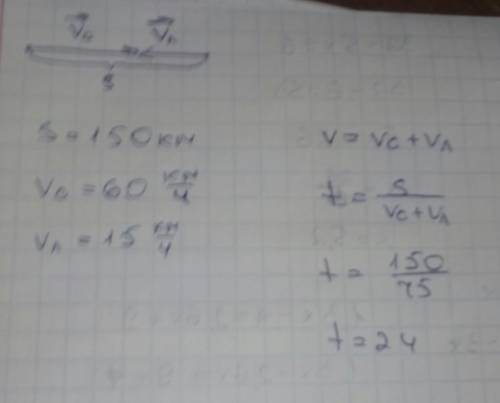 V⃗c V⃗л
S
S = 150 км
Vc = 60 км/ч
Vл = 15 км/ч
V = Vc + Vл
t = S / (Vc + Vл)
t = 150 / 75
t = 2 ч